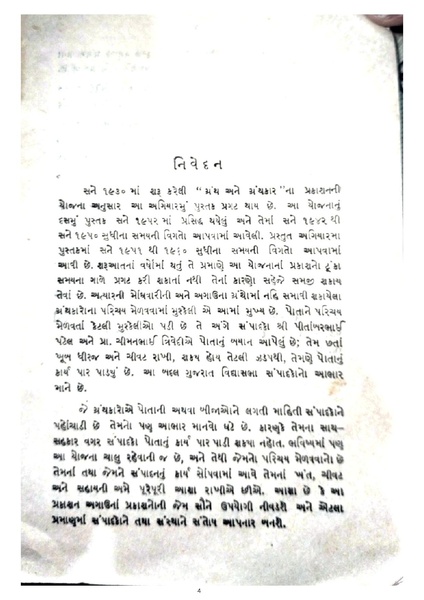 નિવેદન
સને ૧૯૩૦ માં શરૂ કરેલી "ગ્રંથ અને ગ્રંથકાર"ના પ્રકાશનની
યોજના અનુસાર આ અગિયારમું પુસ્તક પ્રગટ થાય છે. આ યોજનાનું
દસમું પુસ્તક સને ૧૯૫૨ માં પ્રસિદ્ધ થયેલું અને તેમાં સને ૧૯૪૨ થી
સને ૧૯૫૦ સુધીના સમયની વિગતો આપવામાં આવેલી. પ્રસ્તુત અગિયારમા
પુસ્તકમાં સને ૧૯૫૧ થી ૧૯૬૦ સુધીના સમયની વિગતો આપવામાં
આવી છે. શરૂઆતનાં વર્ષોમાં થતું તે પ્રમાણે આ યોજનાનાં પ્રકાશનો ટૂંકા
સમયના ગાળે પ્રગટ કરી શકાતાં નથી તેનાં કારણો સહેજે સમજી શકાય
તેવાં છે. અત્યારની મોંઘવારીની અને અગાઉના ગ્રંથોમાં નહિ સમાવી શકાયેલા
ગ્રંથકારોના પરિચય મેળવવામાં મુશ્કેલી એ આમાં મુખ્ય છે. પોતાને પરિચય
મેળવતાં કેટલી મુશ્કેલીઓ પડી છે તે અંગે સંપાદકો શ્રી પીતાંબરભાઈ
પટેલ અને પ્રા. ચીમનભાઈ ત્રિવેદીએ પોતાનું બયાન આપેલું છે; તેમ છતાં
ખૂબ ધીરજ અને ચીવટ રાખી, શક્ય હોય તેટલી ઝડપથી, તેમણે પોતાનું
કાર્ય પાર પાડ્યું છે. આ બદલ ગુજરાત વિદ્યાસભા સંપાદકોનો આભાર
માને છે.
જે ગ્રંથકારોએ પોતાની અથવા બીજાઓને લગતી માહિતી સંપાદકોને
પહોંચાડી છે તેમનો પણ આભાર માનવો ઘટે છે. કારણકે તેમના સાથ-
સહકાર વગર સંપાદકો પોતાનું કાર્ય પાર પાડી શકયા નહોત. ભવિષ્યમાં પણ
આ યોજના ચાલુ રહેવાની જ છે, અને તેથી જેમનો પરિચય મેળવવાનો છે
તેમનાં તથા જેમને સંપાદનનું કાર્ય સોંપવામાં આવે તેમનાં ખંત, ચીવટ
અને સહાયની અમે પૂરેપૂરી આશા રાખીએ છીએ. આશા છે કે આ
પ્રકાશન અગાઉનાં પ્રકાશનોની જેમ સૌને ઉપયોગી નીવડશે અને એટલા
પ્રમાણમાં સંપાદકોને તથા સંસ્થાને સંતોષ આપનાર બનશે.
4